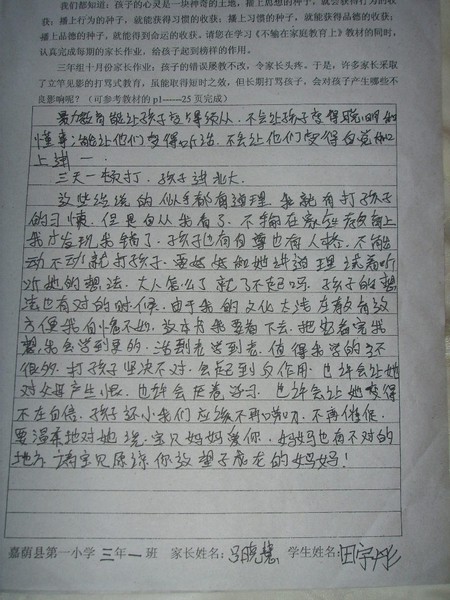 我们都知道：孩子的心灵是一块神奇的土地，播上思想的种子，就会获得行为的收
获；播上行为的种子，就能获得习惯的收获；播上习惯的种子，就能获得品德的收获；
播上品德的种子，就能得到命运的收获。请您在学习《不输在家庭教育上》教材的同时，
认真完成每期的家长作业，给孩子起到榜样的作用。
三年组十月份家长作业：孩子的错误屡教不改，令家长头疼。于是，许多家长采取
了立竿见影的打骂式教育，虽能取得短时之效，但长期打骂孩子，会对孩子产生哪些不
良影响呢？（可参考教材的 p1------25 页完成）
暴力教育能让孩子变得顺从，不会让孩子变得聪明
懂事；能让他们变得听话，不会让他们变得自觉
上进一．
三天一顿打．孩子进北大．
这些传统的似乎都有道理．我就有打孩子
的习惯．但是自从我看了．不输在家庭教育上
我才发现我错了．孩子也有自尊也有人格．不能
动不动就打孩子．要好好和她讲道理 试着听
听她的想法．大人怎么了就了不起吗．孩子的想
法也有对的时候．由于我的文化太浅在教育孩
方便我自愧不如．这本书我要看下去．把它看完我
想我会学到更的．活到老学到老．值得我学的
很的．打孩子坚决不对．会起到反作用．也许会让她
对父母产生恨．也许会厌卷学习．也许会让她变得
不在自信．孩子还小我们应该不再．不再催促．
要温柔地对她说．宝贝妈妈爱你．妈妈也有不对的
地方 请宝贝原谅你这望子成龙的妈妈！
嘉荫县第一小学 三年一班 家长姓名：马晓慧 学生姓名：田宇